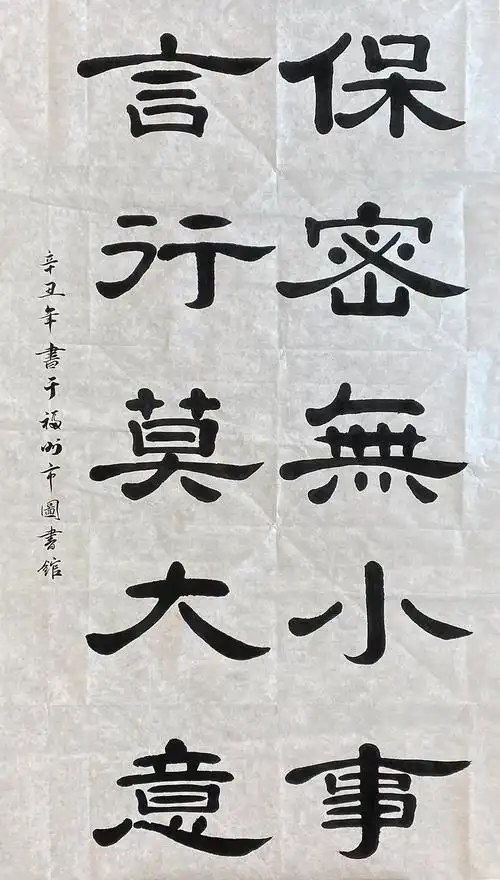 保密無小事
言行莫大意
辛丑年書于福州市圖書館